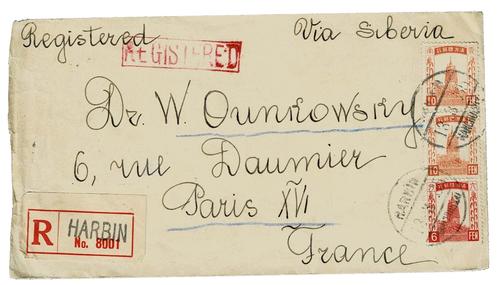 Registered Via Siberia
REGISTERED
Dr. W. Ounkowsky
6, rue Daumier
Paris XVI
France
R HARBIN
No. 8001
10 FEN
10 FEN
6 FEN
HARBIN